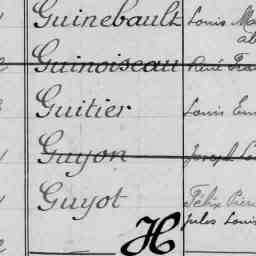 Guinebault Louis Ma
al
Guinoiseau René Fra
Guitier Louis Em
Guyon Joseph Lou
Guyot Félix Pier
Jules Louis
H